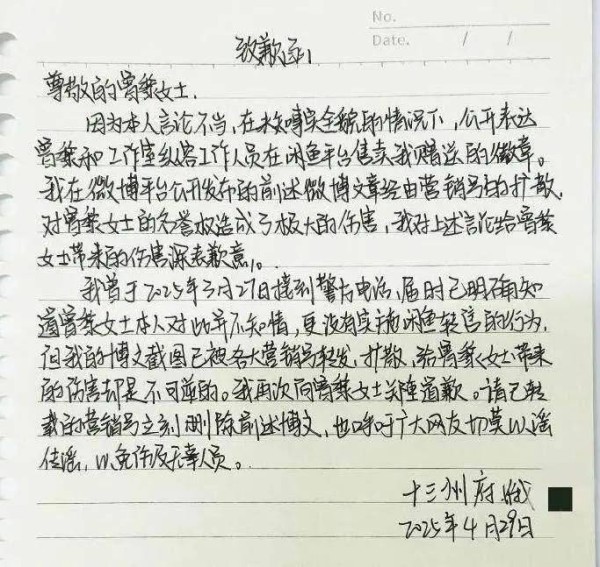 No.
Date. / /
致歉函
尊敬的曾黎女士.
因为本人言论不当,在未核实全貌的情况下,公开表达
曾黎和工作室纵容工作人员在闲鱼平台售卖我赠送的徽章。
我在微博平台公开发布的前述微博文章经由营销号的扩散,
对曾黎女士的名誉权造成了极大的伤害,我对上述言论给曾黎
女士带来的伤害深表歉意。
我曾于2025年3月27日接到警方电话,届时已明确知
道曾黎女士本人对此并不知情,更没有实施闲鱼转售的行为,
但我的博文截图已被各大营销号转发,扩散,给曾黎女士带来
的伤害却是不可逆的。我再次向曾黎女士关注道歉。请已转
载的营销号立刻删除前述博文,也呼吁广大网友切莫以谣
传谣,以免涉及无辜人员。
十三州府
2025年4月29日